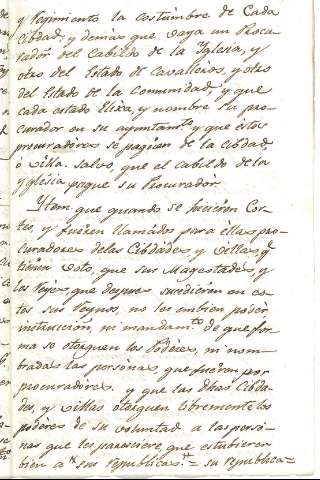 y regimiento la costumbre de Cada
Cibdad; y demás que vaya un Procu-
rador del Cabildo de la Yglesia, y
otro del Estado de Cavalleros, y otro
del Estado de la Comunidad, y que
cada estado Elixa, y nombre su pro-
curador en su ayuntam.to y que estos
procuradores se paguen de la cibdad
o villa. salvo, que el cabildo de la
yglesia pague su Procurador.
Ytem que quando se hicieren Cor-
tes, y fueren llamados para ellas pro-
curadores delas Cibdades y villas q.
tienen voto, que sus Magestades, y
los Reyes, que despues sucedieren en es-
tos sus Reynos, no les embien poder,
instruccion, ni mandam.to de que for-
ma se otorguen los Poderes, ni nom-
bradas las personas que fueren por
procuradores. y que las dhas Cibda-
des, y villas otorguen libremente los
poderes de su voluntad a las perso-
nas que les paresciere, que estubieren
bien a sus republicas. = su republica=